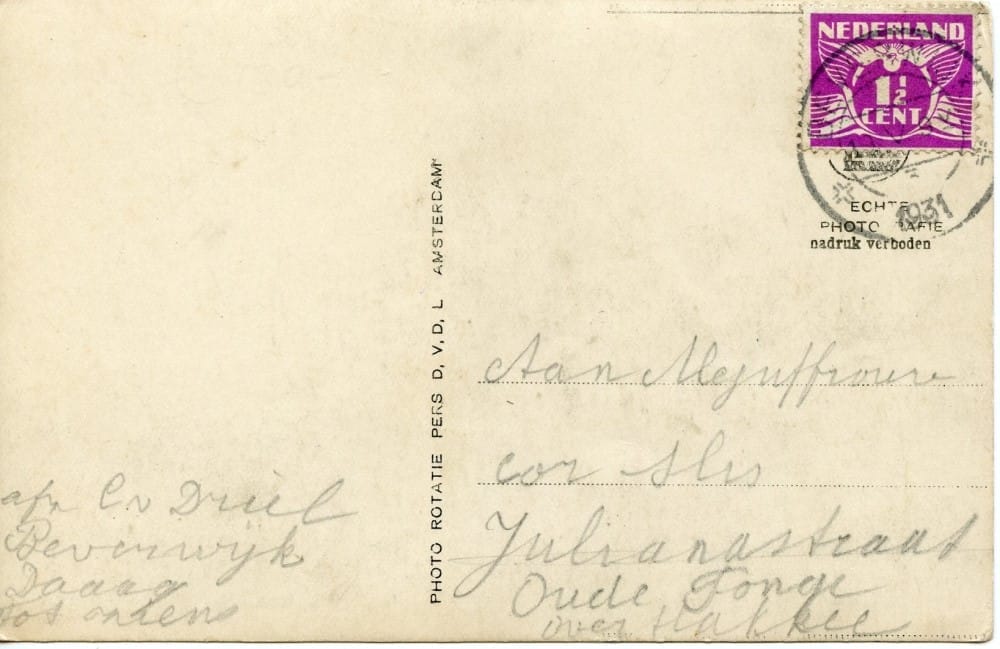 NEDERLAND
1 1/2
CENT
1931
ECHTE
PHOTOGRAFIE
nadruk verboden
PHOTO ROTATIE PERS D, V, D, L AMSTERDAM
Aan Mejuffrouw
Cor Slis
Julianastraat
Oude Tonge
over Flakkee
afz C v Driel
Beverwijk
Daaag
tot ziens